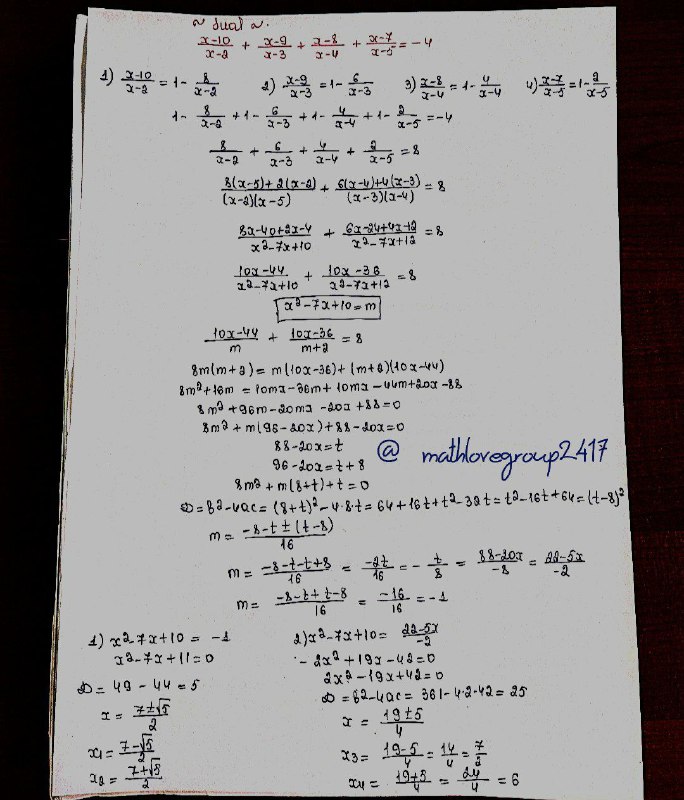 ~ Sual ~
(x-10)/(x-2) + (x-9)/(x-3) + (x-8)/(x-4) + (x-7)/(x-5) = -4
1) (x-10)/(x-2) = 1 - 8/(x-2) 2) (x-9)/(x-3) = 1 - 6/(x-3) 3) (x-8)/(x-4) = 1 - 4/(x-4) 4) (x-7)/(x-5) = 1 - 2/(x-5)
1 - 8/(x-2) + 1 - 6/(x-3) + 1 - 4/(x-4) + 1 - 2/(x-5) = -4
8/(x-2) + 6/(x-3) + 4/(x-4) + 2/(x-5) = 8
(8(x-5)+2(x-2))/((x-2)(x-5)) + (6(x-4)+4(x-3))/((x-3)(x-4)) = 8
(8x-40+2x-4)/(x²-7x+10) + (6x-24+4x-12)/(x²-7x+12) = 8
(10x-44)/(x²-7x+10) + (10x-36)/(x²-7x+12) = 8
x²-7x+10=m
(10x-44)/m + (10x-36)/(m+2) = 8
8m(m+2) = m(10x-36)+(m+2)(10x-44)
8m²+16m = 10mx-36m+10mx-44m+20x-88
8m²+96m-20mx-20x+88=0
8m²+m(96-20x)+88-20x=0
88-20x=t
96-20x=t+8
8m²+m(8+t)+t=0
D=b²-4ac=(8+t)²-4·8·t=64+16t+t²-32t=t²-16t+64=(t-8)²
m = (-8-t±(t-8))/16
m = (-8-t-t+8)/16 = -2t/16 = -t/8 = (88-20x)/-8 = (22-5x)/-2
m = (-8-t+t-8)/16 = -16/16 = -1
1) x²-7x+10 = -1
x²-7x+11=0
D = 49-44=5
x = (7±√5)/2
x1 = (7-√5)/2
x2 = (7+√5)/2
2) x²-7x+10 = (22-5x)/-2
-2x²+19x-42=0
2x²-19x+42=0
D=b²-4ac=361-4·2·42=25
x = (19±5)/4
x3 = (19-5)/4 = 14/4 = 7/2
x4 = (19+5)/4 = 24/4 = 6
@ mathlovegroup2417